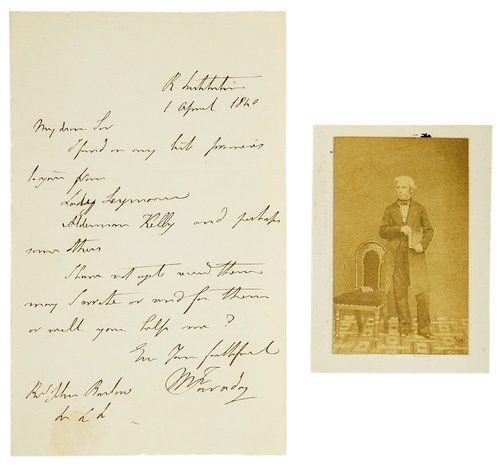 R Institution
1 April 1840
My dear Sir
I find on my list promises
from
Lady Seymour
Alderman Kelly and perhaps
some others
I have not yet recd them
may I write or send for them
or will you help me?
Ever Yours faithful
M Faraday
Revd John Barlow
&c &c